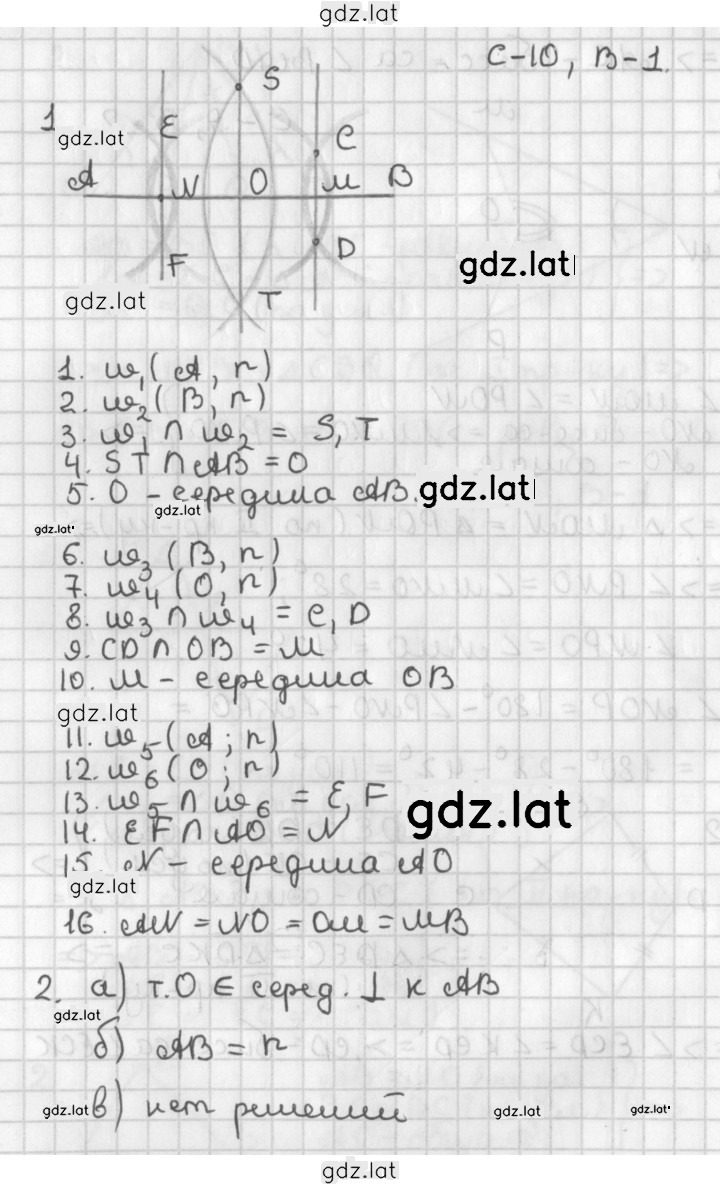 gdz.lat
С-10, В-1.
1
gdz.lat
S
E
C
A N O M B
F
D
T
gdz.lat
gdz.lat
1. w₁(A, r)
2. w₂(B, r)
3. w₁ ∩ w₂ = S, T
4. ST ∩ AB = O
5. O - середина AB.
gdz.lat
gdz.lat
gdz.lat
6. w₃(B, r)
7. w₄(O, r)
8. w₃ ∩ w₄ = C, D
9. CD ∩ OB = M
10. M - середина OB
gdz.lat
11. w₅(A; r)
12. w₆(O; r)
13. w₅ ∩ w₆ = E, F
14. EF ∩ AO = N
gdz.lat
15. N - середина AO
gdz.lat
16. AN = NO = OM = MB
2. а) т.O ∈ серед. ⊥ к AB
gdz.lat
б) AB = r
в) нет решений
gdz.lat
gdz.lat
gdz.lat
gdz.lat